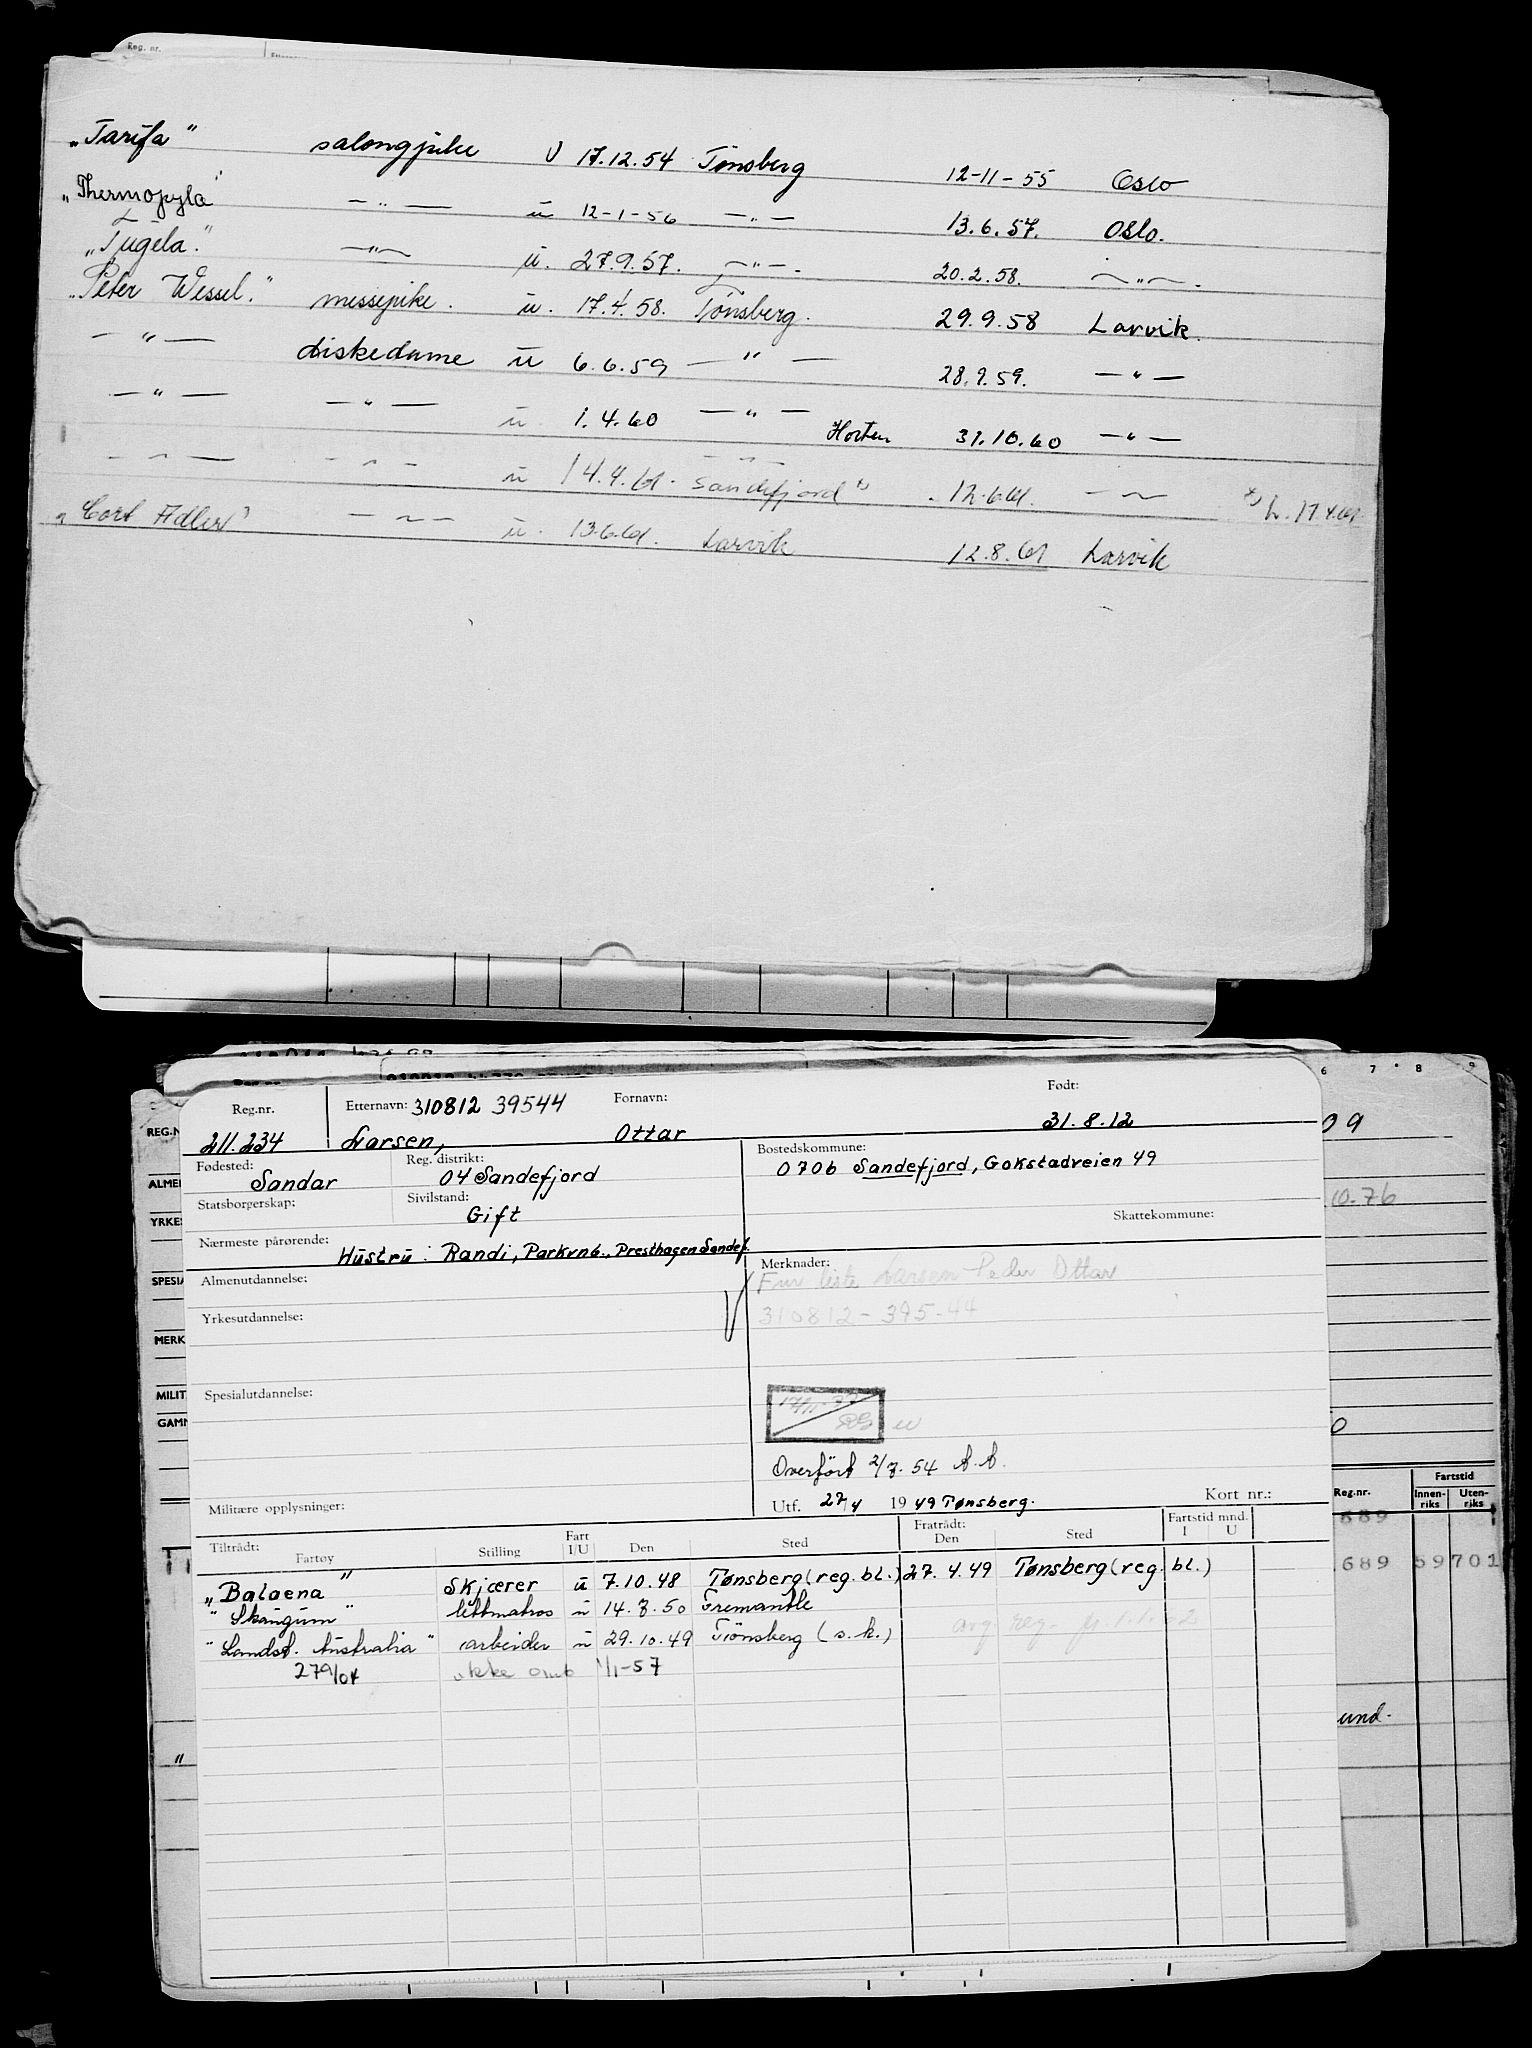 Reg. nr.
„Tarifa" salongpike U 17.12.54 Tønsberg 12-11-55 Oslo
„Thermopylæ" — " — ü 12-1-56 — " — 13.6.57. Oslo.
„Tugela." — " — ü. 27.9.57. — " —. 20.2.58. — " —.
„Peter Wessel." messepike. ü. 17.4.58. Tönsberg. 29.9.58 Larvik.
— " — diskedame ü 6.6.59 — " — 28.9.59. — " —
— " — — " — ü 1.4.60 — " — Horten 31.10.60 — " —
— " — — " — ü 14.4.61. Sandefjord *) 12.6.61. — " — *) L. 17.4.61.
„Cort Adler" — " — ü. 13.6.61. Larvik 12.8.61 Larvik
6 7 8 9
Reg.nr. Etternavn: 310812 39544 Fornavn: Født:
211.234 Larsen, Ottar 31.8.12
Fødested: Reg. distrikt: Bostedskommune:
Sandar 04 Sandefjord 0706 Sandefjord, Gokstadveien 49
Statsborgerskap: Sivilstand:
Gift Skattekommune:
Nærmeste pårørende: Hüstrü: Randi, Parkvn 6., Presthagen Sandef.
Almenutdannelse: Merknader:
Før liste Larsen Peder Ottar
Yrkesutdannelse: 310812-395-44
Spesialutdannelse:
Overført 2/7.54
Militære opplysninger: Utf. 27/4 1949 Tønsberg. Kort nr.:
Tiltrådt: Fartøy Stilling Fart I/U Den Sted Fratrådt: Den Sted Fartstid mnd. I U
„Balaena" Skjærer ü 7.10.48 Tønsberg (reg. bl.) 27.4.49 Tønsberg (reg. bl.)
"Skaugum" lettmatros ü 14.7.50 Fremantle
"Landst. Australia" arbeider ü 29.10.49 Tönsberg (s.k.)
279/04 ikke omb 1/1-57
REG.N
ALME
YRKE
SPESIA
MERK
MILIT
GAMM
09
10-76
0
Reg.nr. Fartstid Innen-riks Uten-riks
689
689 59 701
und.
"